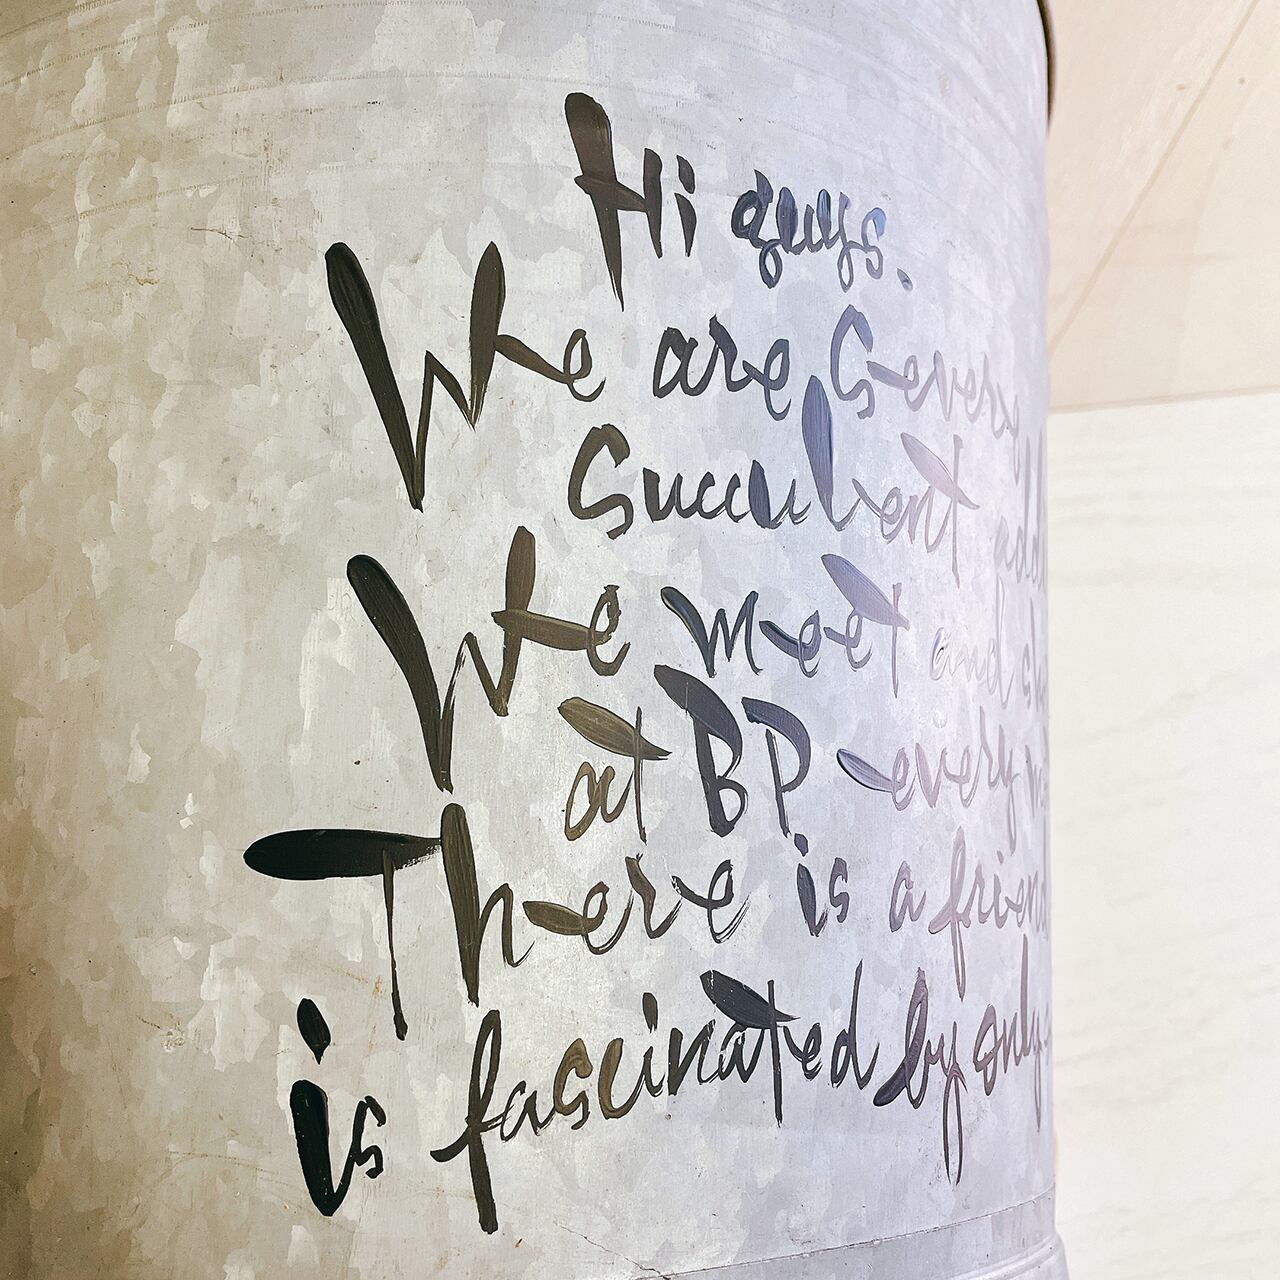 Hi guys.
We are Severe
Succulent
We meet and
at BP every
There is a friend
is fascinated by only